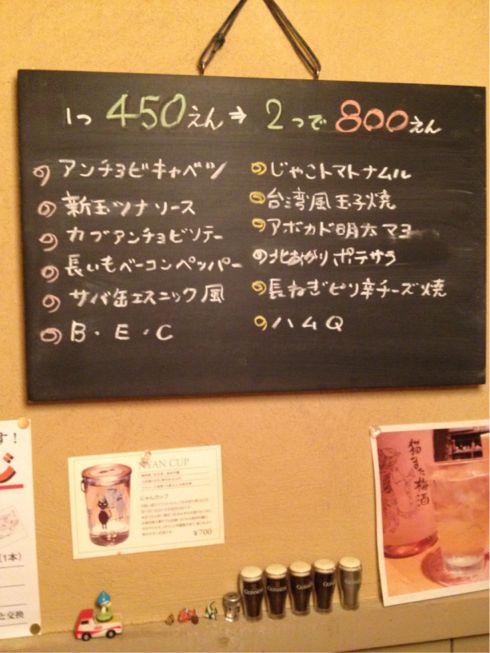 1つ 450えん→2つで 800えん
アンチョビキャベツ
新玉ツナソース
カブアンチョビソテー
長いもベーコンペッパー
サバ缶エスニック風
B・E・C
じゃこトマトナムル
台湾風玉子焼
アボカド明太マヨ
北あかりポテサラ
長ねぎピリ辛チーズ焼
ハムQ
NYAN CUP
にゃんカップ
¥700
猫また梅酒
(1本)
と交換
GUINNESS